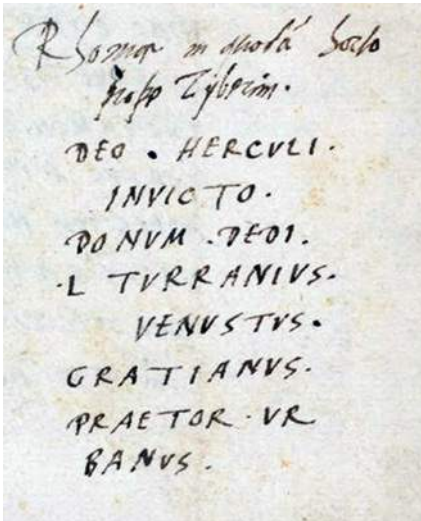 Rhomae in quodã horto
prope Tyberim.
DEO . HERCVLI .
INVICTO .
DONVM . DEDI .
. L TVRRANIVS .
VENVSTVS .
GRATIANVS .
PRAETOR . VR
BANVS .